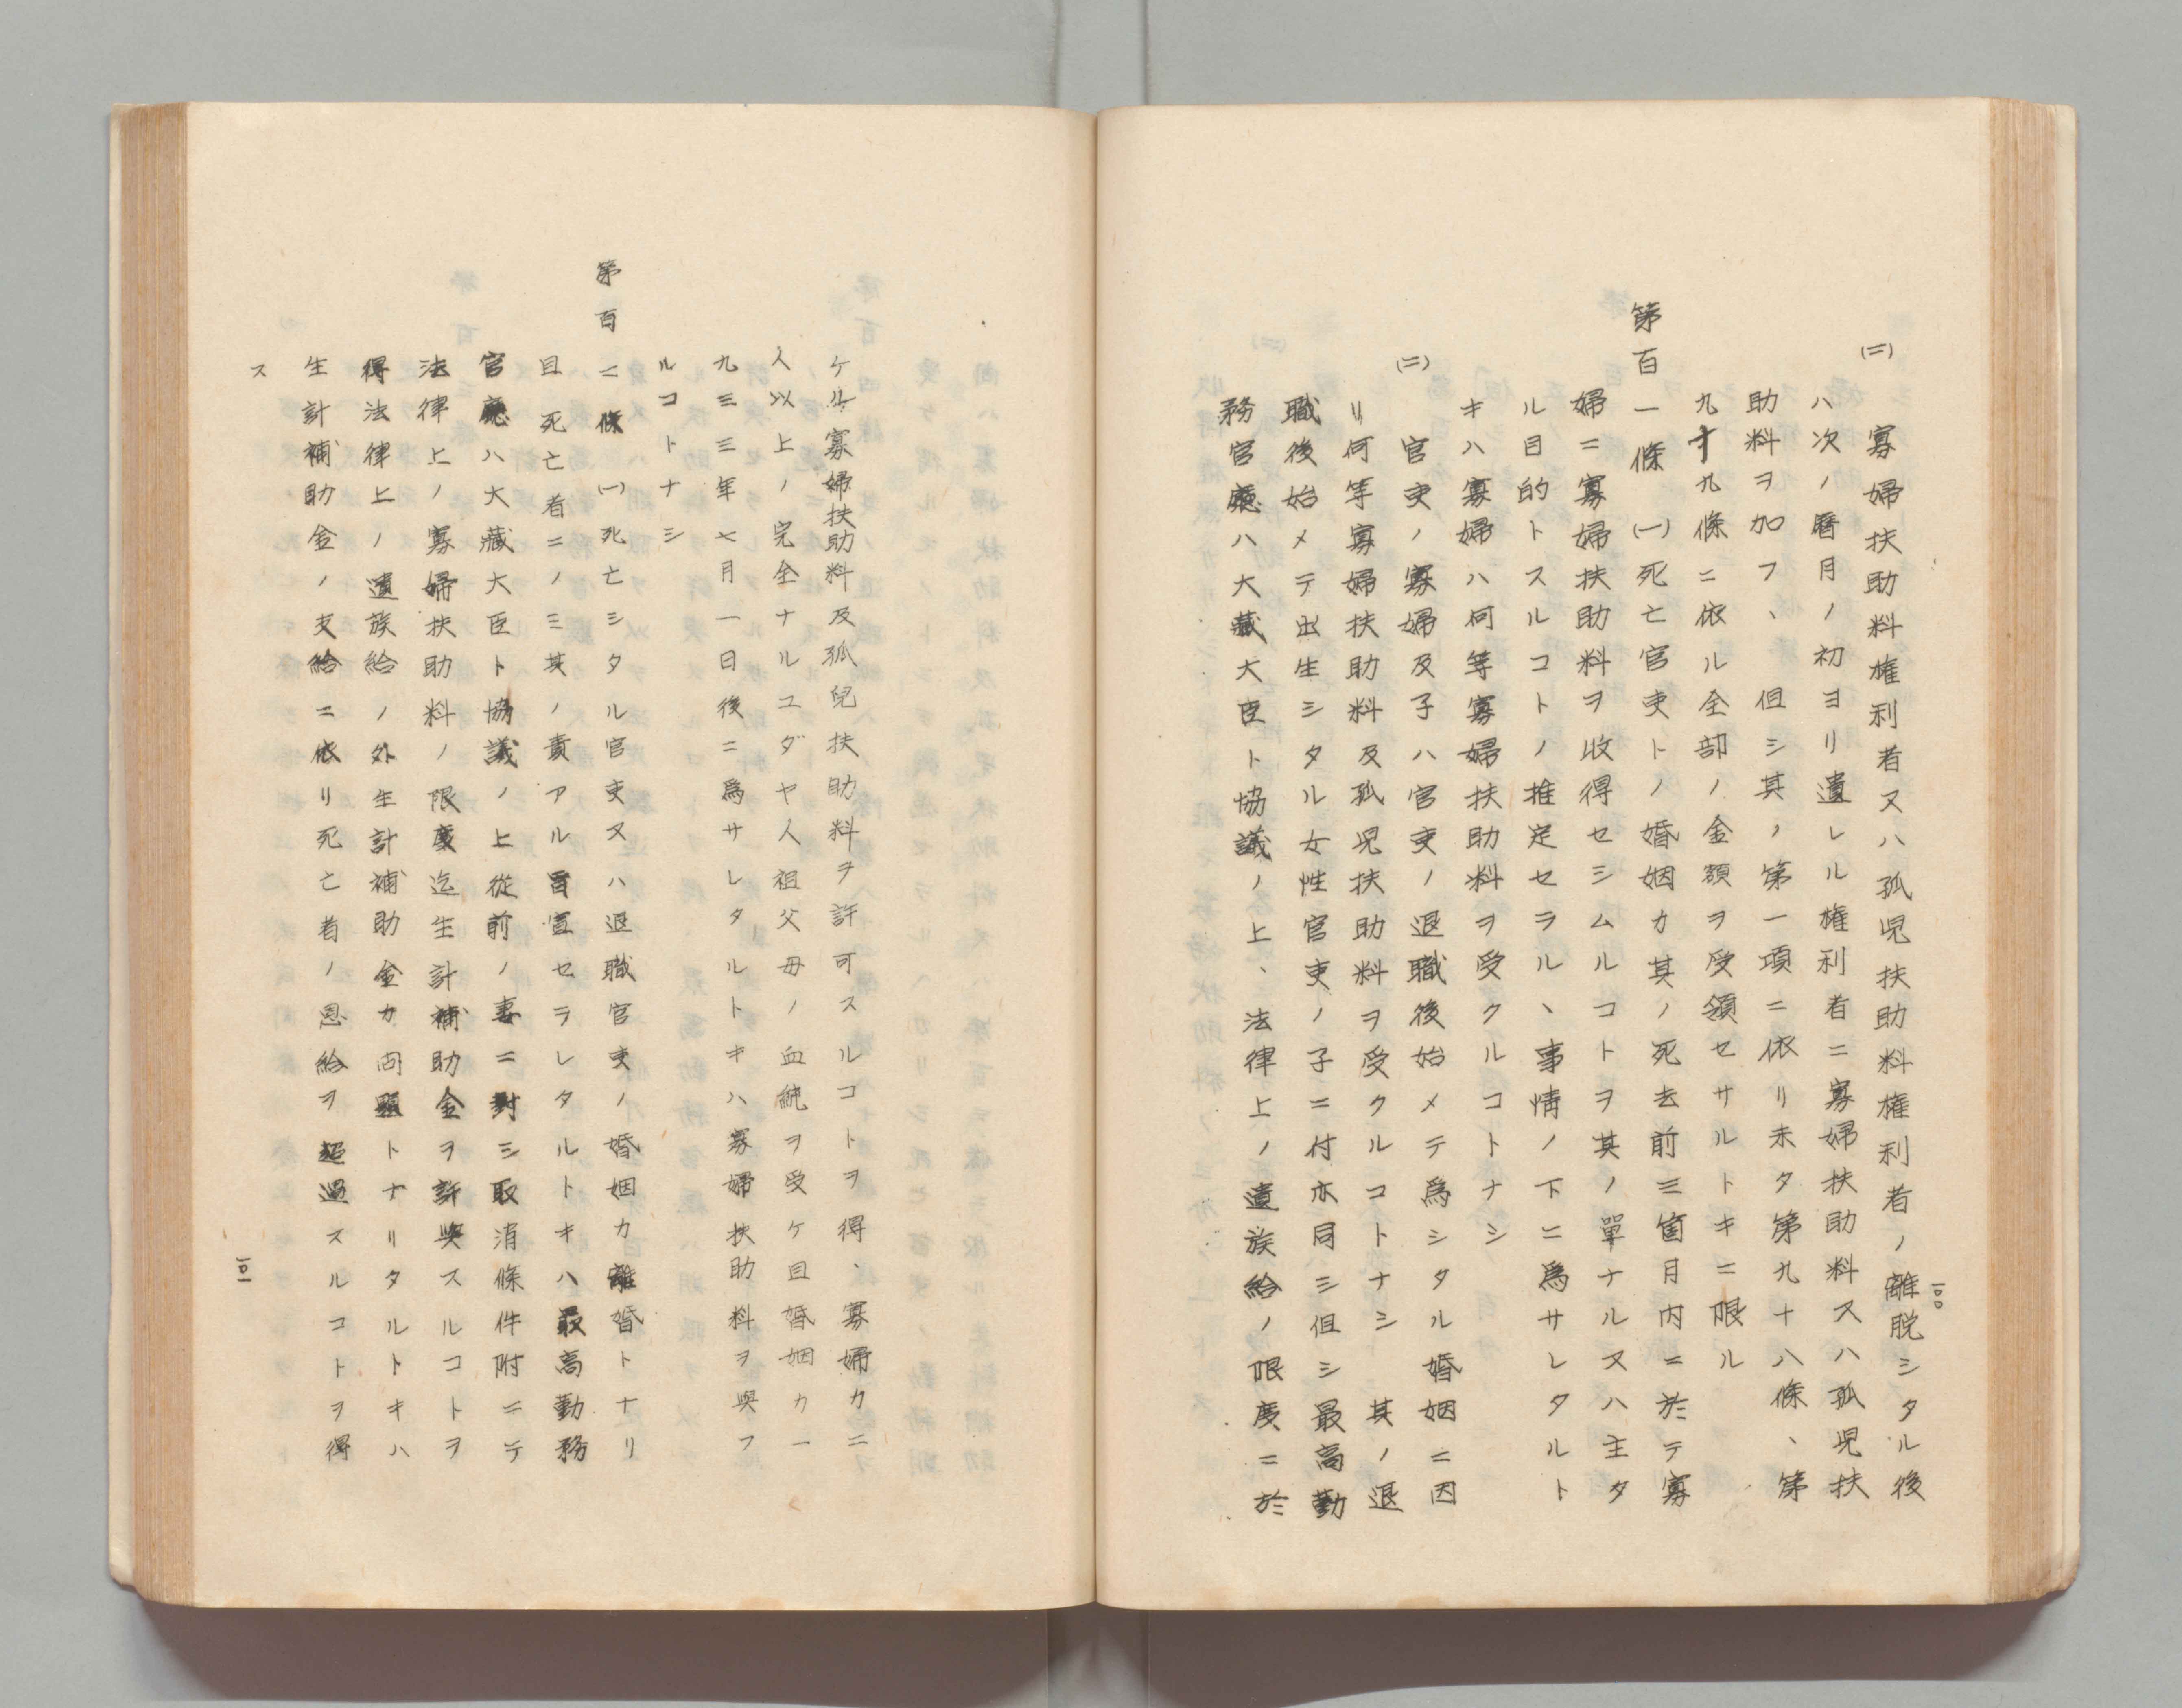 (二) 寡婦扶助料権利者又ハ孤児扶助料権利者ノ離脱シタル後
ハ次ノ暦月ノ初ヨリ遺レル権利者ニ寡婦扶助料又ハ孤児扶
助料ヲ加フ、但シ其ノ第一項ニ依リ未タ第九十八條、第
九十九條ニ依ル全部ノ金額ヲ受領セサルトキニ限ル
第百一條 (一)死亡官吏トノ婚姻カ其ノ死去前三箇月内ニ於テ寡
婦ニ寡婦扶助料ヲ收得セシムルコトヲ其ノ單ナル又ハ主タ
ル目的トスルコトノ推定セラル、事情ノ下ニ爲サレタルト
キハ寡婦ハ何等寡婦扶助料ヲ受クルコトナシ
(二) 官吏ノ寡婦及子ハ官吏ノ退職後始メテ爲シタル婚姻ニ因
リ何等寡婦扶助料及孤児扶助料ヲ受クルコトナシ 其ノ退
職後始メテ出生シタル女性官吏ノ子ニ付亦同シ但シ最高勤
務官廰ハ大藏大臣ト協議ノ上、法律上ノ遺族給ノ限度ニ於
一〇〇
ケル寡婦扶助料及孤兒扶助料ヲ許可スルコトヲ得、寡婦カニ
人以上ノ完全ナルユダヤ人祖父母ノ血統ヲ受ケ且婚姻カ一
九三三年七月一日後ニ爲サレタルトキハ寡婦扶助料ヲ與フ
ルコトナシ
第百二條 (一)死亡シタル官吏又ハ退職官吏ノ婚姻カ離婚トナリ
且死亡者ニノミ其ノ責アル旨宣セラレタルトキハ最高勤務
官廰ハ大藏大臣ト協議ノ上從前ノ妻ニ對シ取消條件附ニテ
法律上ノ寡婦扶助料ノ限度迄生計補助金ヲ許與スルコトヲ
得法律上ノ遺族給ノ外生計補助金カ問題トナリタルトキハ
生計補助金ノ支給ニ依リ死亡者ノ恩給ヲ超過スルコトヲ得
ス
一〇一